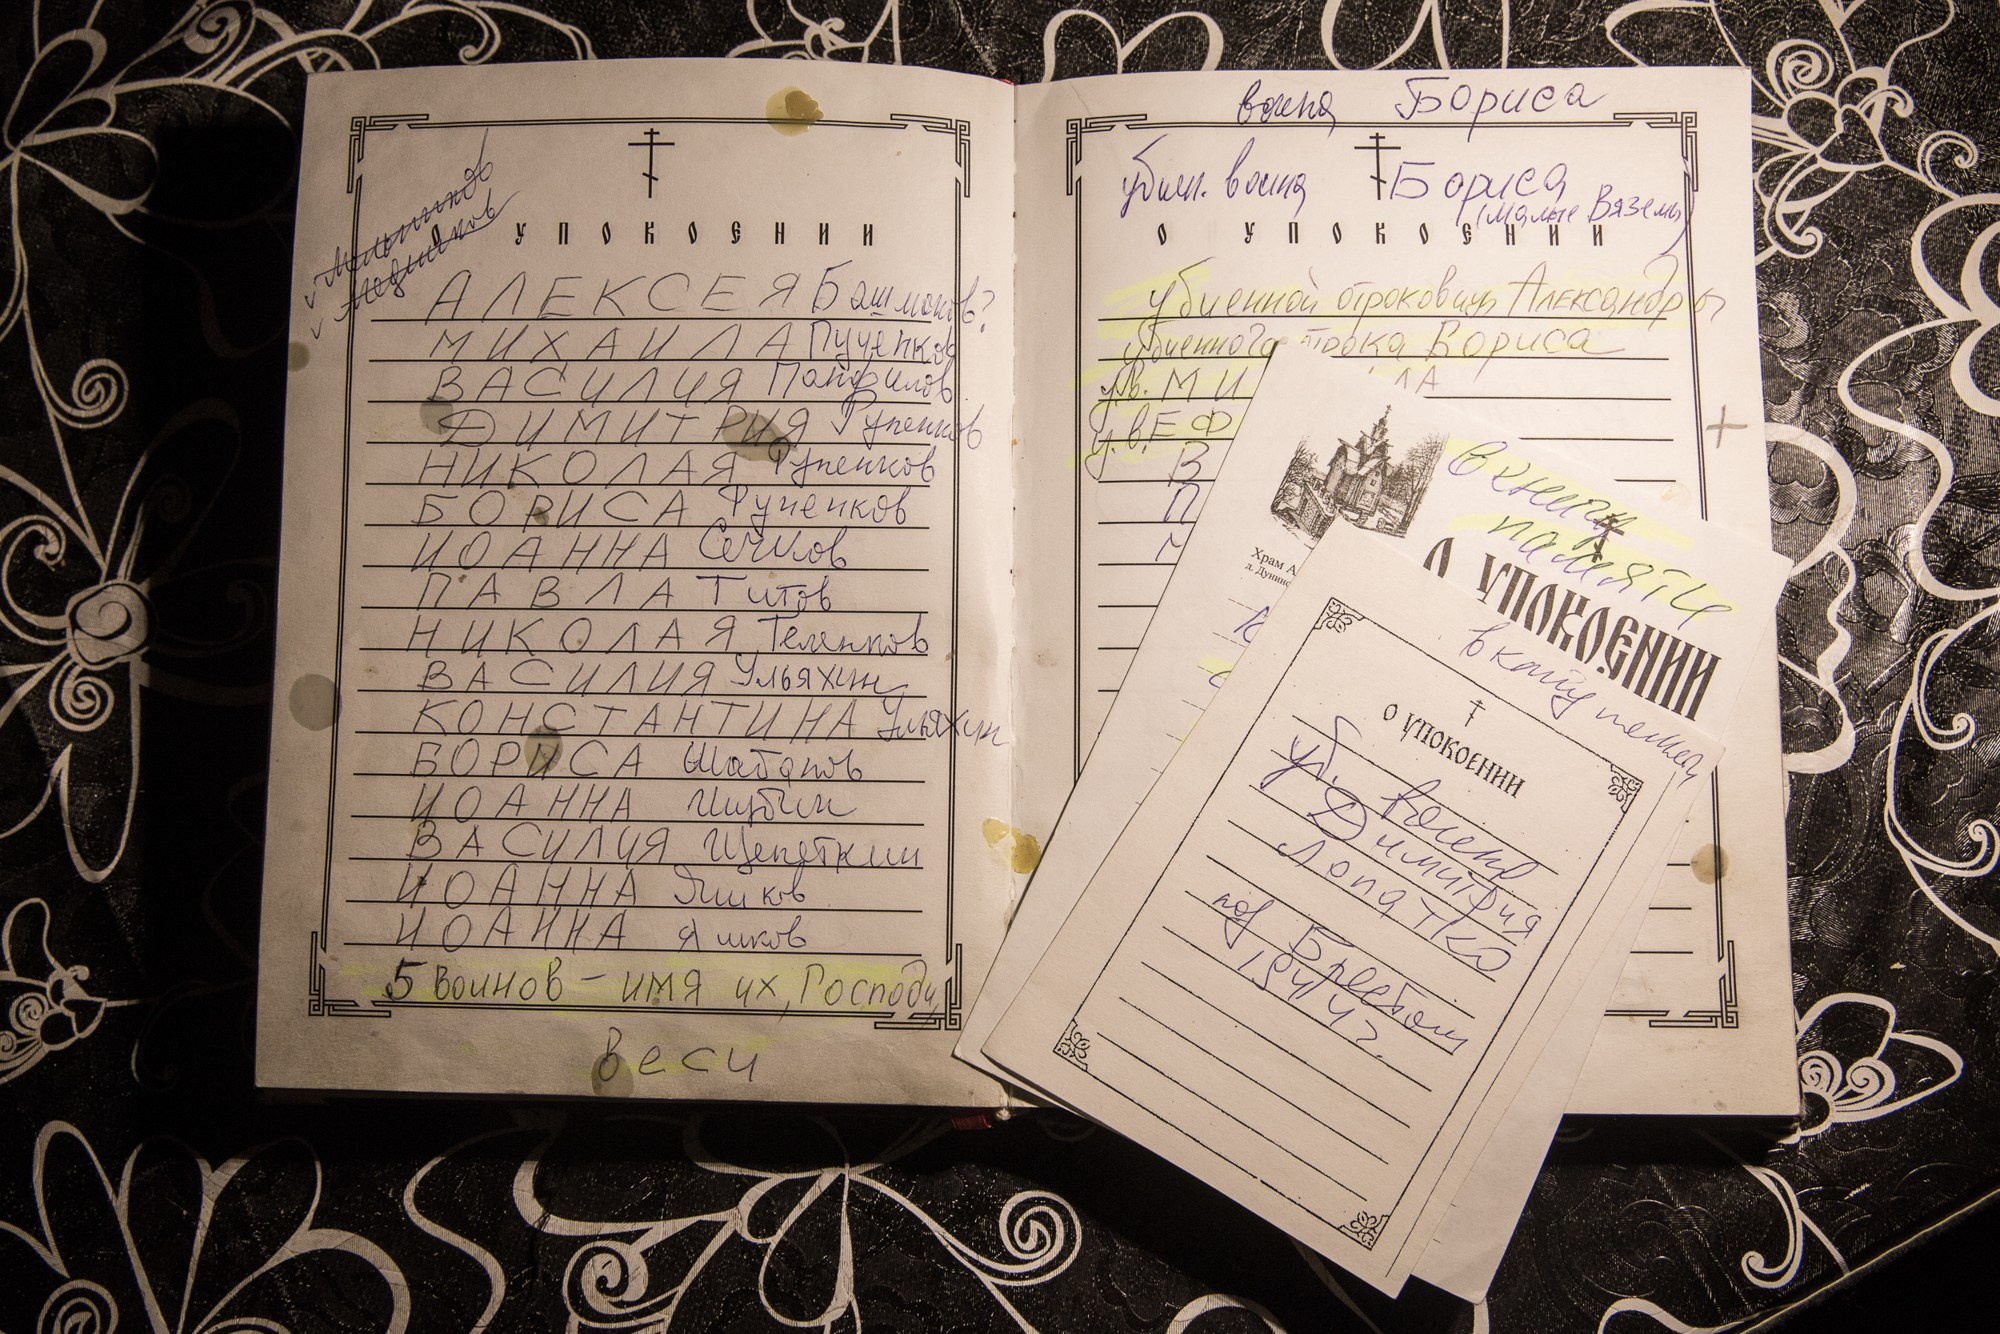 О УПОКОЕНИИ
АЛЕКСЕЯ Башмаков?
МИХАИЛА Пученков
ВАСИЛИЯ Панфилов
ДИМИТРИЯ Рупенков
НИКОЛАЯ Рупенков
БОРИСА Рупенков
ИОАННА Сечков
ПАВЛА Титов
НИКОЛАЯ Теленков
ВАСИЛИЯ Ульяхин
КОНСТАНТИНА Ульяхин
БОРИСА Шабанов
ИОАННА
ВАСИЛИЯ Щепеткин
ИОАННА Яшков
ИОАННА Яшков
5 воинов – имя их, Господи,
веси
воина Бориса
убит. воина Бориса
(Малые Вяземы)
О УПОКОЕНИИ
убиенной отроковицы Александры
убиенного Бориса
ув. МИ ЛА
ув. ЕФ
В
П
Храм А
д. Дунино
в книгу
памяти
О УПОКОЕНИИ
в книгу
О УПОКОЕНИИ
уб. воена
Димитрия
Лопатко
под Брестом
1944 г.